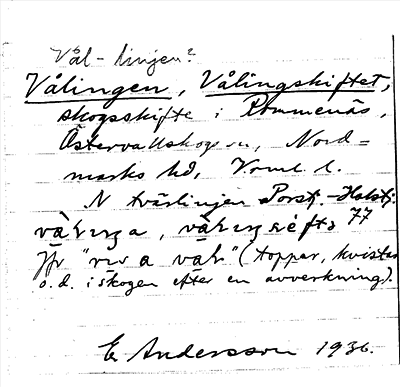 Vål-linjen?
Vålingen, Vålingskiftet,
skogsskifte i Rommenäs,
Östervallskogs sn, Nord=
marks hd, Vrml. l.
N tvärlinjen Torsk.-Holstj.
77
Jfr "riva vål" (toppar, kvistar
o.d. i skogen efter en avverkning).
E. Andersson 1936.